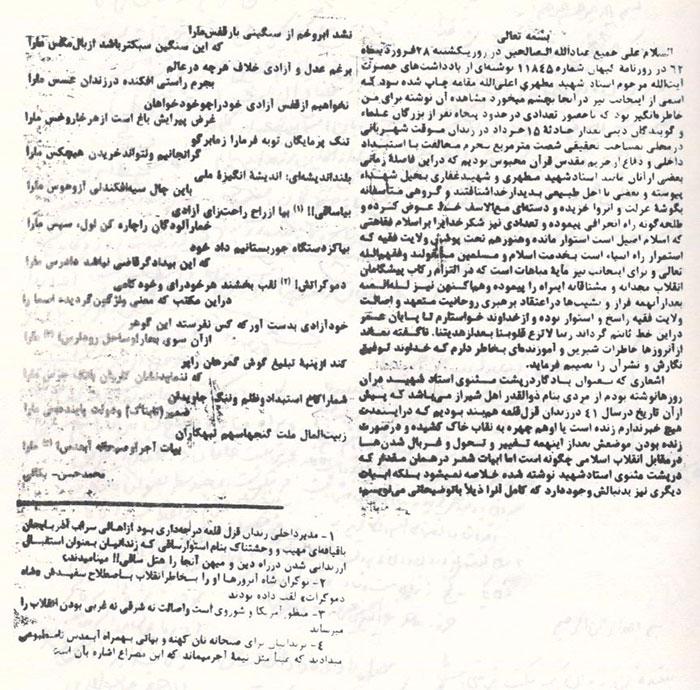 بسمه تعالی
السلام علی جمیع عبادالله الصالحین در روز یکشنبه ۲۸ فروردینماه
۶۲ در روزنامه کیهان شماره ۱۱۸۴۵ نوشته‌ای از یادداشت‌های حضرت
آیت‌الله مرحوم استاد شهید مطهری اعلی‌الله مقامه چاپ شده بود که
اسمی از اینجانب نیز در آنجا بچشم میخورد مشاهده آن نوشته برای من
خاطره‌انگیز بود که باحضور تعدادی در حدود پنجاه نفر از بزرگان علماء
و گویندگان دینی بعداز حادثهٔ ۱۵ خرداد در زندان موقت شهربانی
در محلی بمساحت تحقیقی شصت مترمربع بجرم مخالفت با استبداد
داخلی و دفاع از حریم مقدس قرآن محبوس بودیم که دراین فاصلهٔ زمانی
بعضی از آنان مانند استاد شهید مطهری و شهید غفاری بخیل شهداء
پیوسته و بعضی با اجل طبیعی بدیدار خدا شتافتند و گروهی متأسفانه
بگوشهٔ عزلت و انزوا خزیده و دسته‌ای مع‌الاسف خط عوض کرده و
طلحه‌گونه راه انحرافی پیموده و تعدادی نیز شکر خدا برابر اسلام فقاهتی
که اسلام اصیل است استوار مانده و هنوز هم تحت پوشش ولایت فقیه که
استمرار راه انبیاء است بخدمت اسلام و مسلمین مشغولند وفقهم‌الله
تعالی و برای اینجانب نیز مایهٔ مباهات است که در التزام رکاب پیشگامان
انقلاب مجدانه و مشتاقانه این راه را پیموده و هم‌اکنون نیز
بعد از آنهمه فراز و نشیب‌ها در اعتقاد برهبری روحانیت متعهد و اصالت
ولایت فقیه راسخ و استوار بوده و از خداوند خواستارم تا پایان عمر
در این خط ثابتم گرداند ربنا لاتزغ قلوبنا بعد اذ هدیتنا. ناگفته نماند
از آنروزها خاطرات شیرین و آموزنده‌ای بخاطر دارم که خداوند توفیق
نگارش و نشر آن را نصیبم فرماید.
اشعاری که بعنوان یادگار در پشت مثنوی استاد شهید در آن
روزها نوشته بودم از مردی بنام ذوالقدر اهل شیراز میباشد که پیش
از آن تاریخ در سال ۴۱ در زندان قزل‌قلعه همبند بودیم که در اینمدت
هیچ خبر ندارم زنده است یا او هم چهره به نقاب خاک کشیده و در صورت
زنده بودن موضعش بعد از اینهمه تغییر و تحول و غربال شدن‌ها
در مقابل انقلاب اسلامی چگونه است اما ابیات شعر در همان مقدار که
در پشت مثنوی استاد شهید نوشته شده خلاصه نمیشود بلکه ابیات
دیگری نیز بدنبالش وجود دارد که کامل آنرا ذیلاً با توضیحاتی می‌نویسم
نشد ابرو غم از سنگینی بار قفس مارا
که این سنگین سبکتر باشد از بال مگس مارا
برغم عدل و آزادی خلاف هرچه در عالم
بجرم راستی افکنده در زندان عسس مارا
نخواهیم از قفس آزادی خود را چو خود خواهان
غرض پیرایش باغ است از هر خار و خس مارا
ننگ پرمایگان توبه فرما را زما برگو
گرانجانیم ونتواند خریدن هیچکس مارا
بلنداندیشه‌ای: اندیشهٔ انگیزهٔ ملی
باین چال سیه افکندنی از و هوس مارا
بیاساقی!! (۱) بیا از راح راحت‌زای آزادی
خمارآلودگان را چاره کن اول، سپس مارا
بیا کز دستگاه جور بستانیم داد خود
که این بیدادگر قاضی نباشد دادرس مارا
دموکراتش! (۲) لقب بخشند هر خودرای و خودکامی
در این مکتب که معنی واژگون گردیده
خود آزادی بدست آور که کس نفرستد این گوهر
از آن سوی (۳) مارا
کند از پنبهٔ تبلیغ گوش گمرهان را پر
که مارا
شمارا کاخ استبداد وظلم و ننگ جاویدان
مارا
زبیت‌المال ملت گنجها سهم تبهکاران
بیات آجر و صبحانه آبعدس! (۴) مارا
۱ - مدیر داخلی زندان قزل قلعه درجه‌داری بود از اهالی سراب آذربایجان
با قیافه‌ای مهیب و وحشتناک بنام استوار ساقی که زندانیان بعنوان استقبال
از زندانی شدن در راه دین و میهن آنجا را هتل ساقی!! مینامیدند
۲- نوکران شاه آنروزها او را بخاطر انقلاب باصطلاح سفیدش «شاه
دموکرات» لقب داده بودند
۳ - منظور آمریکا و شوروی است واصالت نه شرقی نه غربی بودن انقلاب را
میرساند
۴ - بزندانیان برای صبحانه نان کهنه و بیاتی بهمراه آبعدس نامطبوعی
میدادند که عیناً مثل نیمهٔ آجر میماند که این مصراع اشاره بآن است